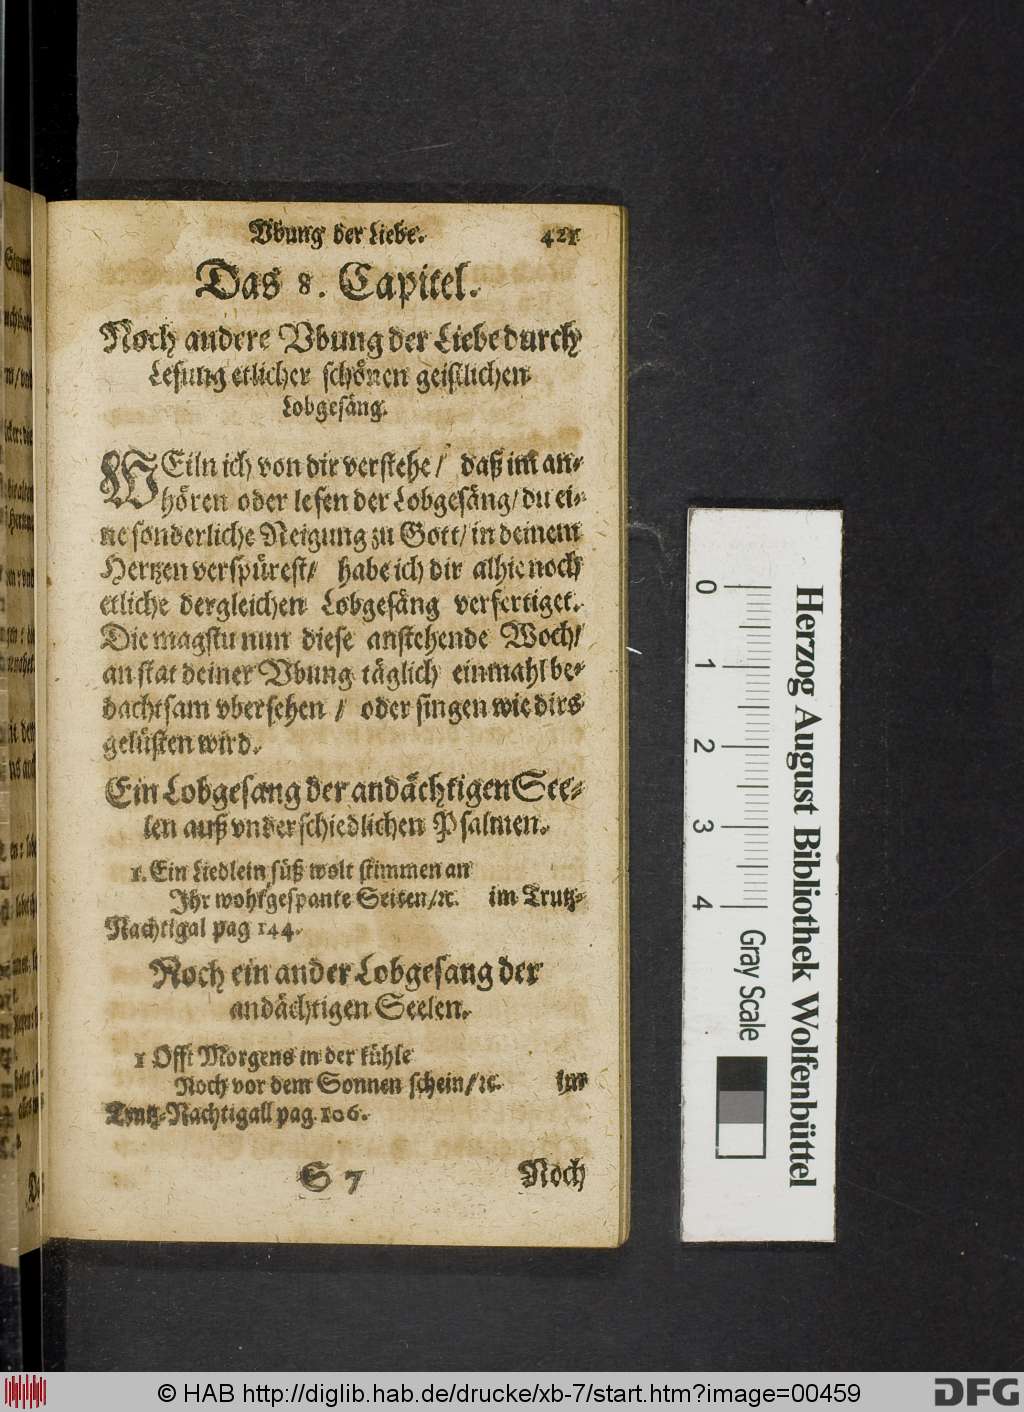 Vbung der Liebe. 421
Das 8. Capitel.
Noch andere Vbung der Liebe durch
Lesung etlicher schönen geistlichen
Lobgesäng.
WEiln ich von dir verstehe/ daß im an-
hören oder lesen der Lobgesäng/ du ei-
ne sonderliche Neigung zu Gott/ in deinem
Hertzen verspürest/ habe ich dir alhie noch
etliche dergleichen Lobgesäng verfertiget.
Die magstu nun diese anstehende Woch/
an stat deiner Vbung täglich einmahl be-
dachtsam vbersehen / oder singen wie dirs
gelüsten wird.
Ein Lobgesang der andächtigen See-
len auß vnderschiedlichen Psalmen.
1. Ein Liedlein süß wolt stimmen an
Ihr wohlgespante Seiten/ꝛc. im Trutz-
Nachtigal pag 144.
Noch ein ander Lobgesang der
andächtigen Seelen.
1 Offt Morgens in der kühle
Noch vor dem Sonnen schein/ꝛc. im
Trutz-Nachtigall pag. 106.
S 7 Noch
0 1 2 3 4 Gray Scale
Herzog August Bibliothek Wolfenbüttel
© HAB http://diglib.hab.de/drucke/xb-7/start.htm?image=00459
DFG